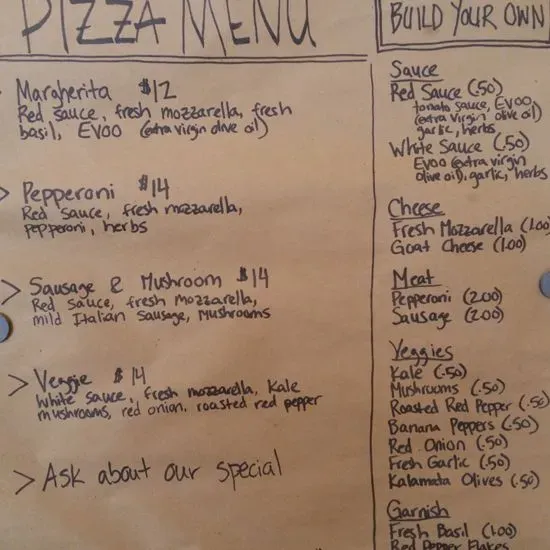 PIZZA MENU
Margherita $12
Red sauce, fresh mozzarella, fresh
basil, EVOO (extra virgin olive oil)
> Pepperoni $14
Red sauce, fresh mozzarella,
pepperoni, herbs
> Sausage & Mushroom $14
Red sauce, fresh mozzarella,
mild Italian sausage, mushrooms
> Veggie $14
White sauce, fresh mozzarella, Kale
mushrooms, red onion, roasted red pepper
> Ask about our special
BUILD YOUR OWN
Sauce
Red Sauce (.50)
tomato sauce, EVOO
(extra virgin olive oil)
garlic, herbs
White Sauce (.50)
EVOO (extra virgin
olive oil), garlic, herbs
Cheese
Fresh Mozzarella (1.00)
Goat Cheese (1.00)
Meat
Pepperoni (2.00)
Sausage (2.00)
Veggies
Kale (.50)
Mushrooms (.50)
Roasted Red Pepper (.50)
Banana Peppers (.50)
Red Onion (.50)
Fresh Garlic (.50)
Kalamata Olives (.50)
Garnish
Fresh Basil (1.00)
Red Pepper Flakes